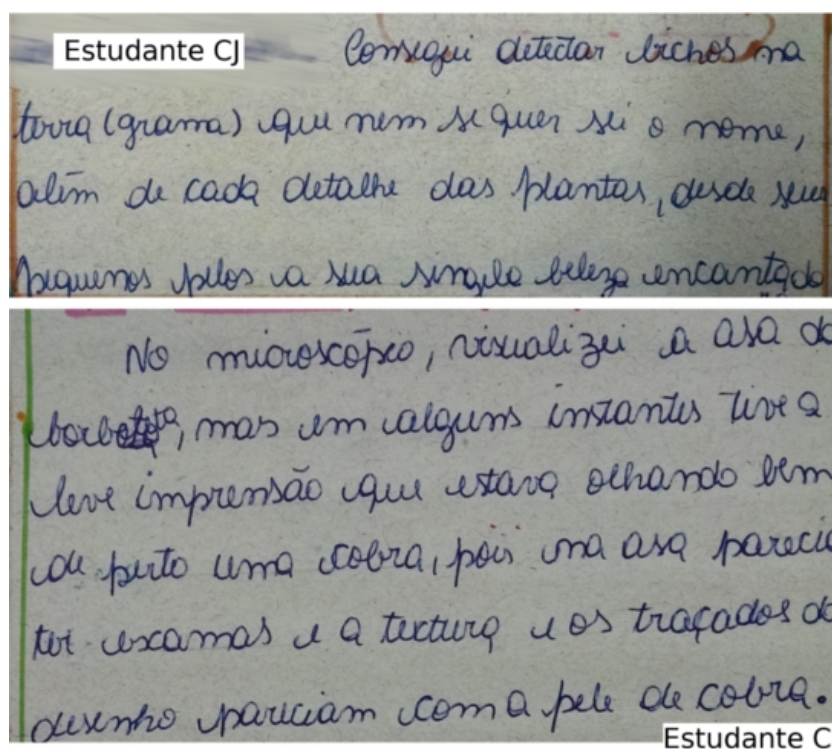 Estudante CJ
Consegui detectar bichos na
terra (grama) que nem se quer sei o nome,
além de cada detalhe das plantas, desde seus
pequenos pelos a sua singela beleza encantado
No microscópio, visualizei a asa do
borboleta, mas em alguns instantes tive a
leve imprensão que estava olhando bem
de perto uma cobra, pois na asa parecia
ter escamas e a textura e os traçados do
desenho pareciam com a pele de cobra.
Estudante C